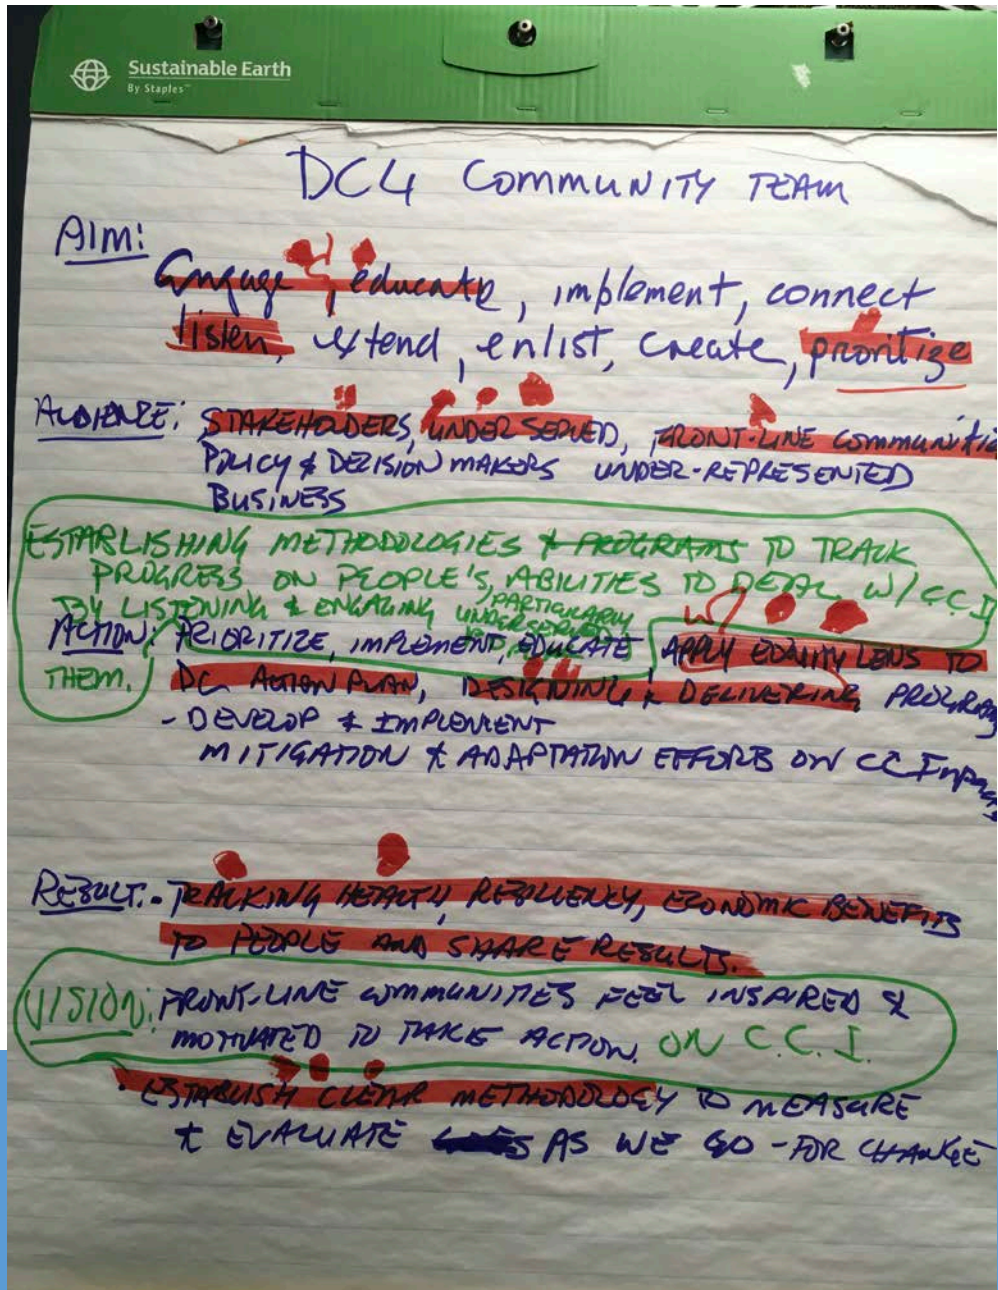 Sustainable Earth
By Staples™
DC4 COMMUNITY TEAM
AIM:
Engage & educate, implement, connect
listen, extend, enlist, create, proritize
AUDIENCE: STAKEHOLDERS, UNDER SERVED, FRONT-LINE communitie
POLICY & DECISION MAKERS UNDER-REPRESENTED
BUSINESS
ESTABLISHING METHODOLOGIES & PROGRAMS TO TRACK
PROGRESS ON PEOPLE'S ABILITIES TO DEAL W/ C.C.I
BY LISTENING & ENGAGING PARTICULARLY
UNDERSERVED
ACTION: PRIORITIZE, IMPLEMENT, EDUCATE APPLY EQUITY LENS TO
THEM. DC ACTION PLAN, DESIGNING & DELIVERING PROGRAMS
- DEVELOP & IMPLEMENT
MITIGATION & ADAPTATION EFFORTS ON CC Impacts
RESULT: - TRACKING HEALTH, RESILIENCY, ECONOMIC BENEFITS
TO PEOPLE AND SHARE RESULTS.
VISION: FRONT-LINE COMMUNITIES FEEL INSPIRED &
MOTIVATED TO TAKE ACTION. ON C.C.I.
• ESTABLISH CLEAR METHODOLOGY TO MEASURE
& EVALUATE AS WE GO - FOR CHANGE